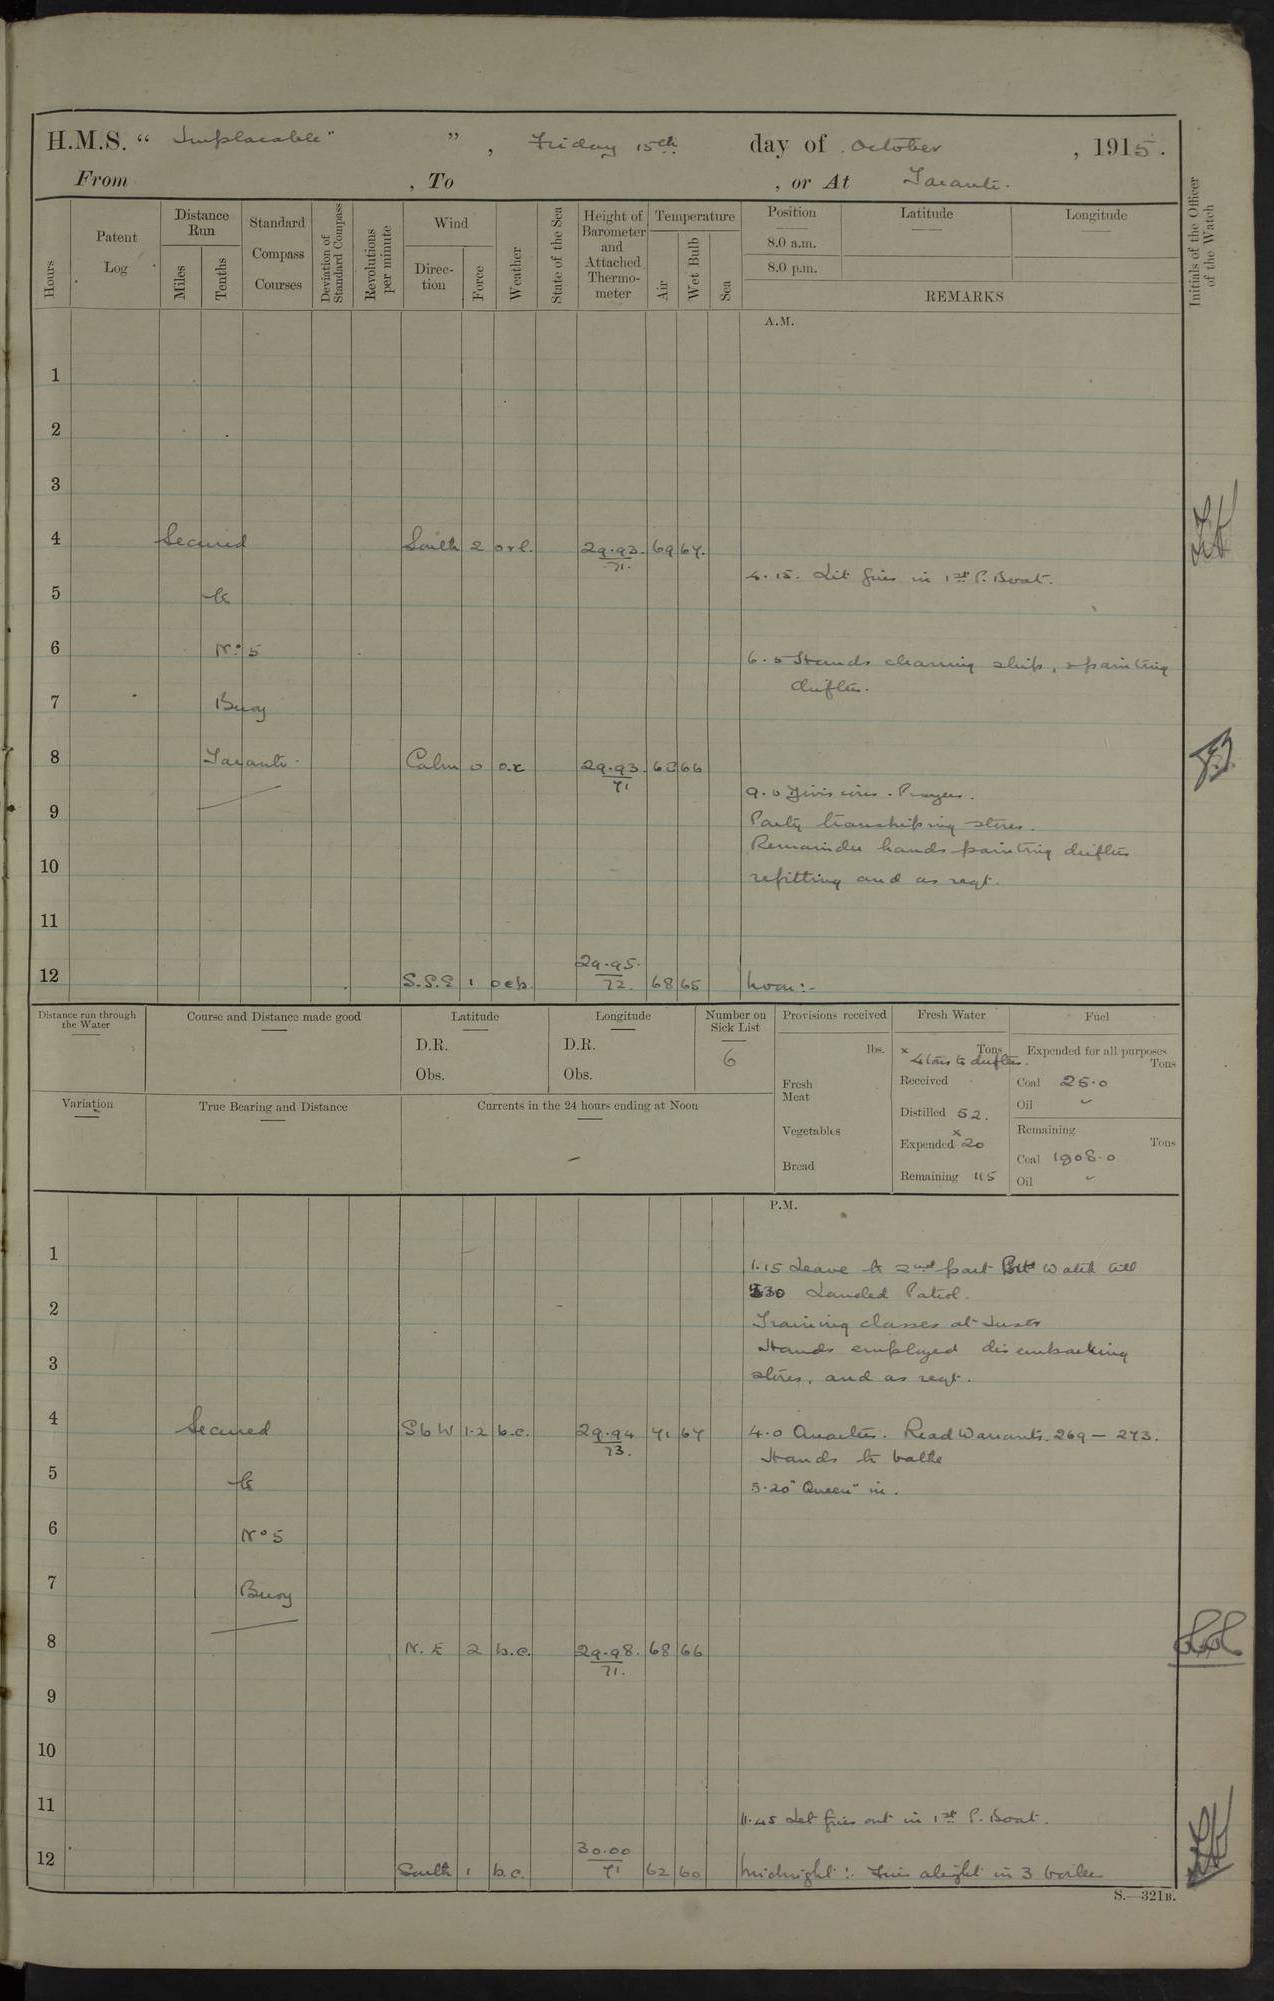 H.M.S. “ Implacable” ” , Friday 15th day of October , 1915.
From , To , or At Taranto.
Hours
Patent Log
Distance Run
Miles
Tenths
Standard Compass Courses
Deviation of Standard Compass
Revolutions per minute
Wind
Direction
Force
Weather
State of the Sea
Height of Barometer and Attached Thermometer
Temperature
Air
Wet Bulb
Sea
Position
8.0 a.m.
8.0 p.m.
Latitude
Longitude
REMARKS
Initials of the Officer of the Watch
A.M.
1
2
3
4 Secured South 2 o.r.l. 29.93. 71. 69 67.
4.15. Lit fires in 1st P. Boat.
5 to
6 No. 5
6.5 Hands cleaning ship, & painting
drifters.
7 Buoy
8 Taranto. Calm 0 o.c 29.93. 71 68 66
9.0 Divisions. Prayers.
9 Party transhipping stores.
Remainder hands painting drifters
10 refitting and as reqt.
11
12 S.S.E 1 29.95. 72. 68 65 Noon:-
Distance run through the Water
Course and Distance made good
Latitude
D.R.
Obs.
Longitude
D.R.
Obs.
Number on Sick List
6
Provisions received
lbs.
Fresh Meat
Vegetables
Bread
Fresh Water
Tons
x 4 tons to drifters.
Received
Distilled 52.
x
Expended 20
Remaining 115
Fuel
Expended for all purposes
Tons
Coal 25.0
Oil
Remaining
Tons
Coal 1908.0
Oil
Variation
True Bearing and Distance
Currents in the 24 hours ending at Noon
P.M.
1 1.15 Leave to 2nd part Watch till
530 Landed Patrol.
2 Training classes at Insts
Hands employed disembarking
3 stores, and as reqt.
4 Secured S b W 1.2 b.c. 29.94 73. 71 67 4.0 Quarters. Read Warrants. 269 – 273.
Hands to bathe
5 to 5.20 "Queen" in.
6 No 5
7 Buoy
8 N. E 2 b.c. 29.98. 71. 68 66
9
10
11 11.45 Let fires out in 1st P. Boat.
12 South 1 b.c. 30.00 71 62 60 Midnight:. Fires alight in 3 boilers
S.—321B.